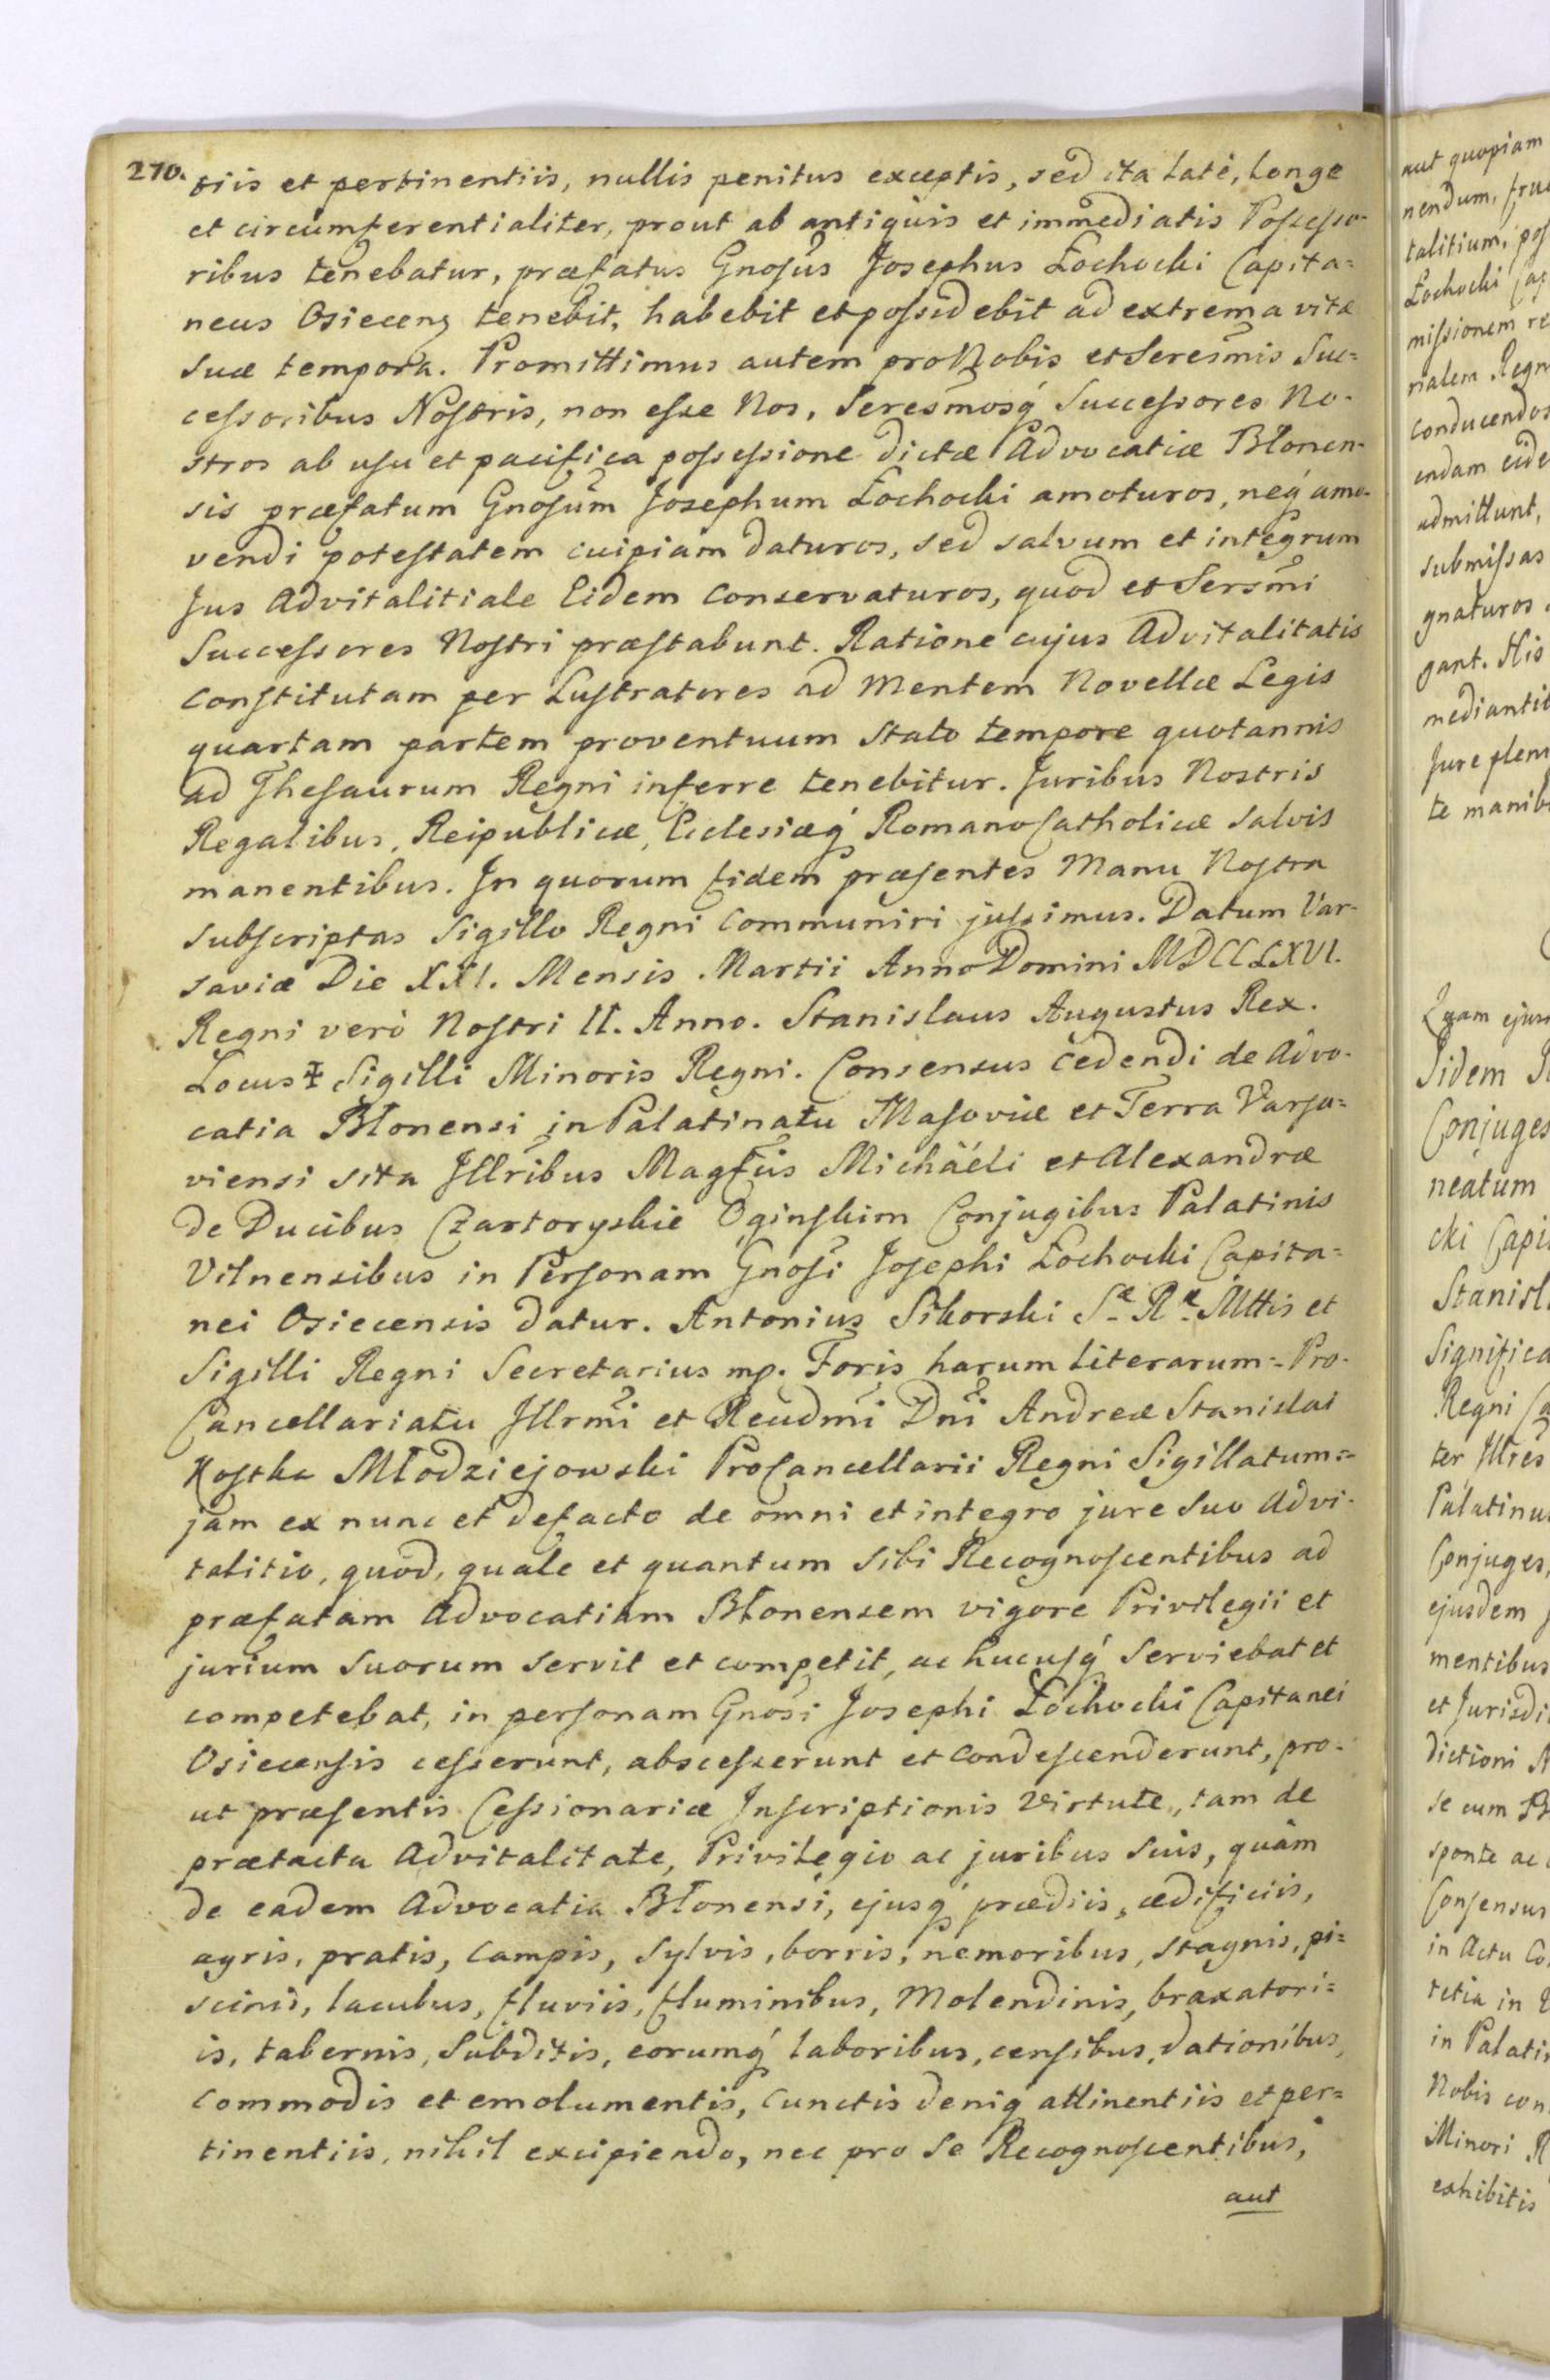 270.
tiis et pertinentiis, nullis penitus exceptis, sed ita latè, longe
et circumferentialiter, prout ab antiquis et immediatis Possesso-
ribus tenebatur, præfatus Gnosus Josephus Łochocki Capita=
neus Osiecens tenebit, habebit et possidebit ad extrema vitæ
suæ tempora. Promittimus autem pro Nobis et Seresmis Suc=
cessoribus Nostris, non esse Nos, Seresmosq́ Successores No-
stros ab usu et pacifica possessione dictæ Advocatiæ Błonen-
sis præfatum Gnosum Josephum Łochocki amoturos, neq́ amo-
vendi potestatem cuipiam daturos, sed salvum et integrum
Jus Advitalitiale Eidem conservaturos, quod et Sersmi
Successores Nostri præstabunt. Ratione cujus Advitalitatis
constitutam per Lustratores ad mentem Novellæ Legis
quartam partem proventuum stato tempore quotannis
ad Thesaurum Regni inferre tenebitur. Juribus Nostris
Regalibus, Reipublicæ, Ecclesiæq́ Romano Catholicæ salvis
manentibus. In quorum fidem præsentes Manu Nostra
subscriptas Sigillo Regni communiri jussimus. Datum Var-
saviæ Die XXI. Mensis Martii Anno Domini MDCCLXVI.
Regni verò Nostri II. Anno. Stanislaus Augustus Rex.
Locus ‡ Sigilli Minoris Regni. Consensus cedendi de Advo-
catia Błonensi in Palatinatu Masoviæ et Terra Varsa=
viensi sita Illribus Magfcis Michaëli et Alexandræ
de Ducibus Czartoryskie Oginskim Conjugibus Palatinis
Vilnensibus in Personam Gnosi Josephi Łochocki Capita=
nei Osiecensis datur. Antonius Sikorski Sæ Ræ Mttis et
Sigilli Regni Secretarius mp. Foris harum literarum=Pro-
Cancellariatu Illrmi et Reudmi Dni Andreæ Stanislai
Kostka Młodziejowski ProCancellarii Regni Sigillatum=
jam ex nunc et defacto de omni et integro jure suo Advi-
talitio, quod, quale et quantum sibi Recognoscentibus ad
præfatam Advocatiam Błonensem vigore Privilegii et
jurium suorum servit et competit, ac hucusq́ serviebat et
competebat, in personam Gnosi Josephi Łochocki Capitanei
Osiecensis cesserunt, abscesserunt et condescenderunt, pro-
ut præsentis Cessionariæ Inscriptionis virtute, tam de
prætacta Advitalitate, Privilegio ac juribus suis, quàm
de eadem Advocatia Błonensi, ejusq́ prædiis, ædificiis,
agris, pratis, campis, sylvis, borris, nemoribus, stagnis, pi=
scinis, lacubus, fluviis, fluminibus, Molendinis, braxatori=
is, tabernis, Subditis, eorumq́ laboribus, censibus, dationibus,
commodis et emolumentis, cunctis deniq́ attinentiis et per=
tinentiis, nihil excipiendo, nec pro se Recognoscentibus,
aut
aut quopiam
nendum, fru
talitium, pos
Łochocki Cap
missionem re
rialem Regn
conducendos
endam eide
admittunt,
submissas
gnaturos
gant. His
mediantib
Jure plen
te manib
Quam ejus
Iidem
Conjuges
neatum
cki Capi
Stanisl
Significa
Regni Ca
ter Illres
Palatinu
Conjuges,
ejusdem
mentibus
et Jurisdi
dictioni
se cum
sponte ac
Consensus
in Actu Co
in Palati
Nobis con
Minori R
exhibitis